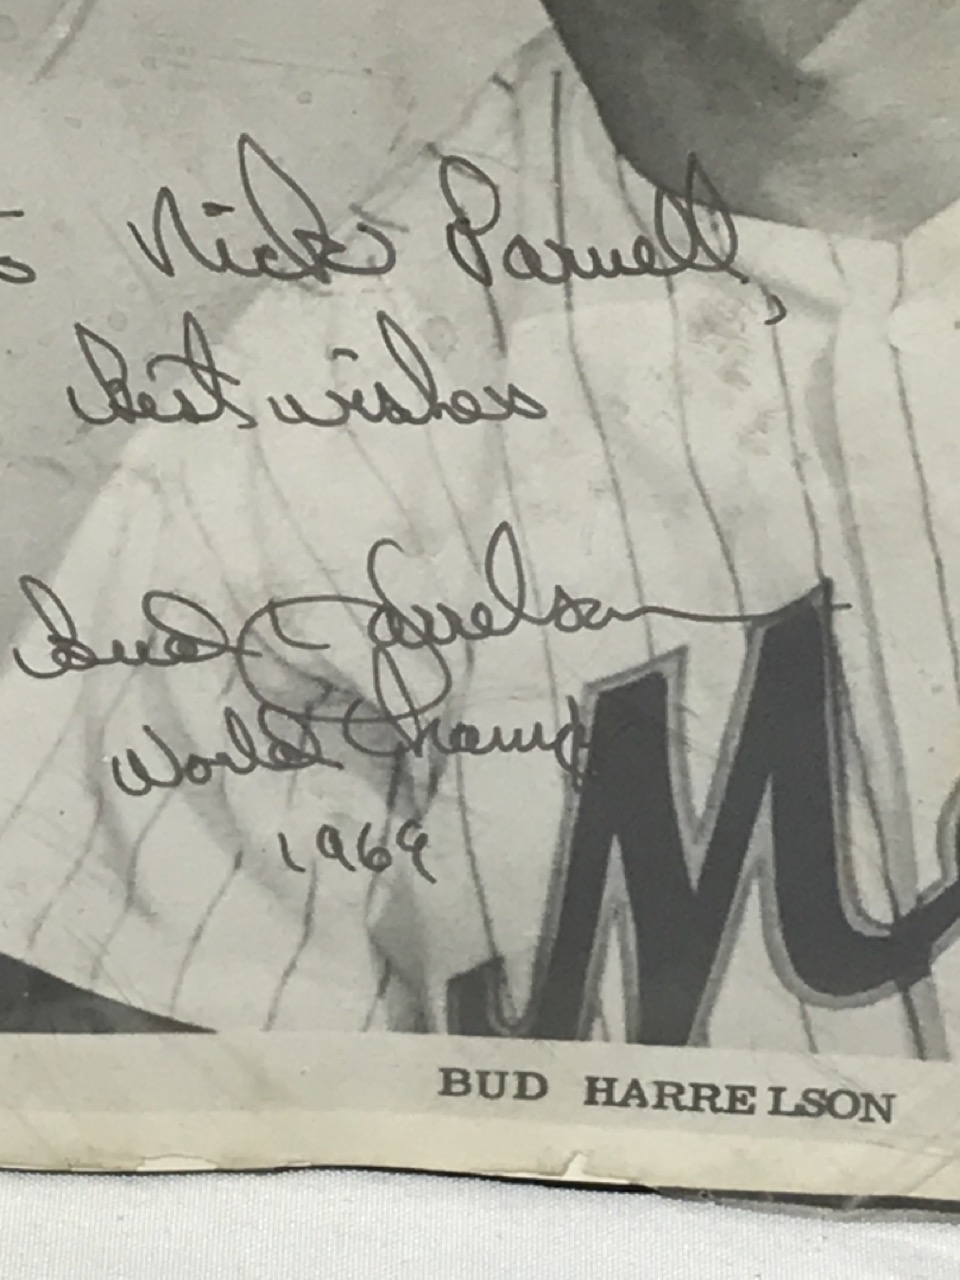 To Nick Parnell,
Best wishes
Bud Harrelson
World Champs
1969
M
BUD HARRELSON